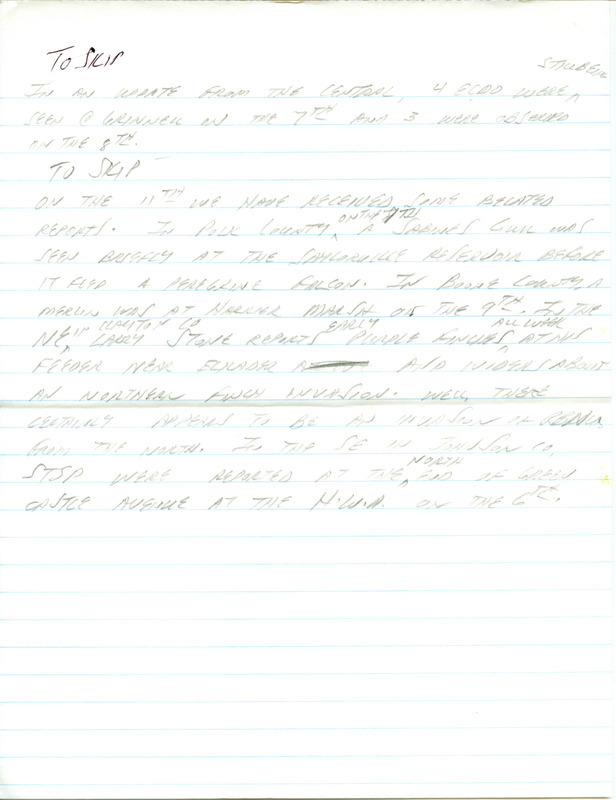 TO SKIP
STALBERG
IN AN UPDATE FROM THE CENTRAL, 4 ECDO WERE
SEEN @ GRINNELL ON THE 7TH AND 3 WERE OBSERVED
ON THE 8TH.
TO SKIP
ON THE 11TH WE HAVE RECEIVED SOME BELATED
REPORTS. IN POLK COUNTY, ON THE 7TH A SABINES GULL WAS
SEEN BRIEFLY AT THE SAYLORVILLE RESERVOIR BEFORE
IT FLED A PEREGRINE FALCON. IN BOONE COUNTY, A
MERLIN WAS AT HARRIER MARSH ON THE 9TH. IN THE
NE IN CLAYTON CO LARRY STONE REPORTS EARLY PURPLE FINCHES ALL WEEK AT HIS
FEEDER NEAR ELKADER AND WONDERS ABOUT
AN NORTHERN FINCH INVASION. WELL, THERE
CERTAINLY APPEARS TO BE AN INVASION OF
FROM THE NORTH. IN THE SE IN JOHNSON CO,
STSP WERE REPORTED AT THE NORTH END OF GREEN
CASTLE AVENUE AT THE H.W.A. ON THE 6TH.